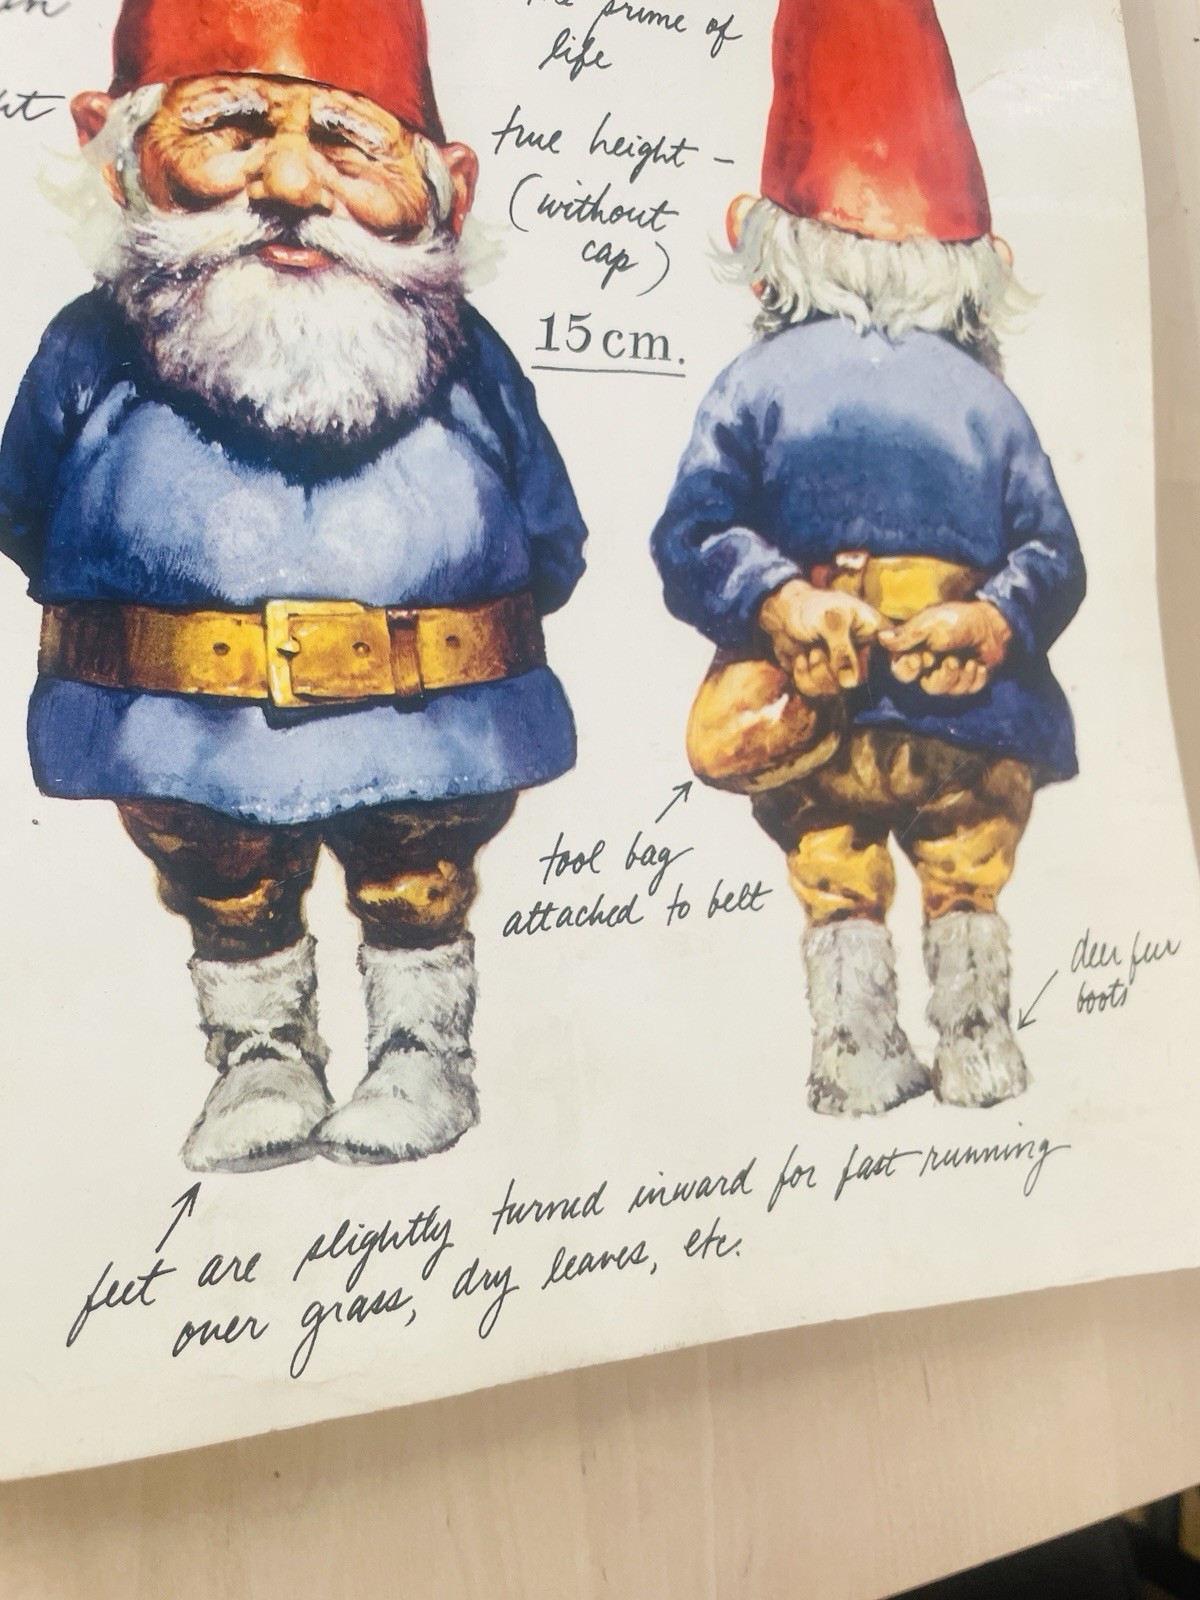 prime of
life
true height –
(without
cap)
15 cm.
tool bag
attached to belt
deer fur
boots
feet are slightly turned inward for fast running
over grass, dry leaves, etc.